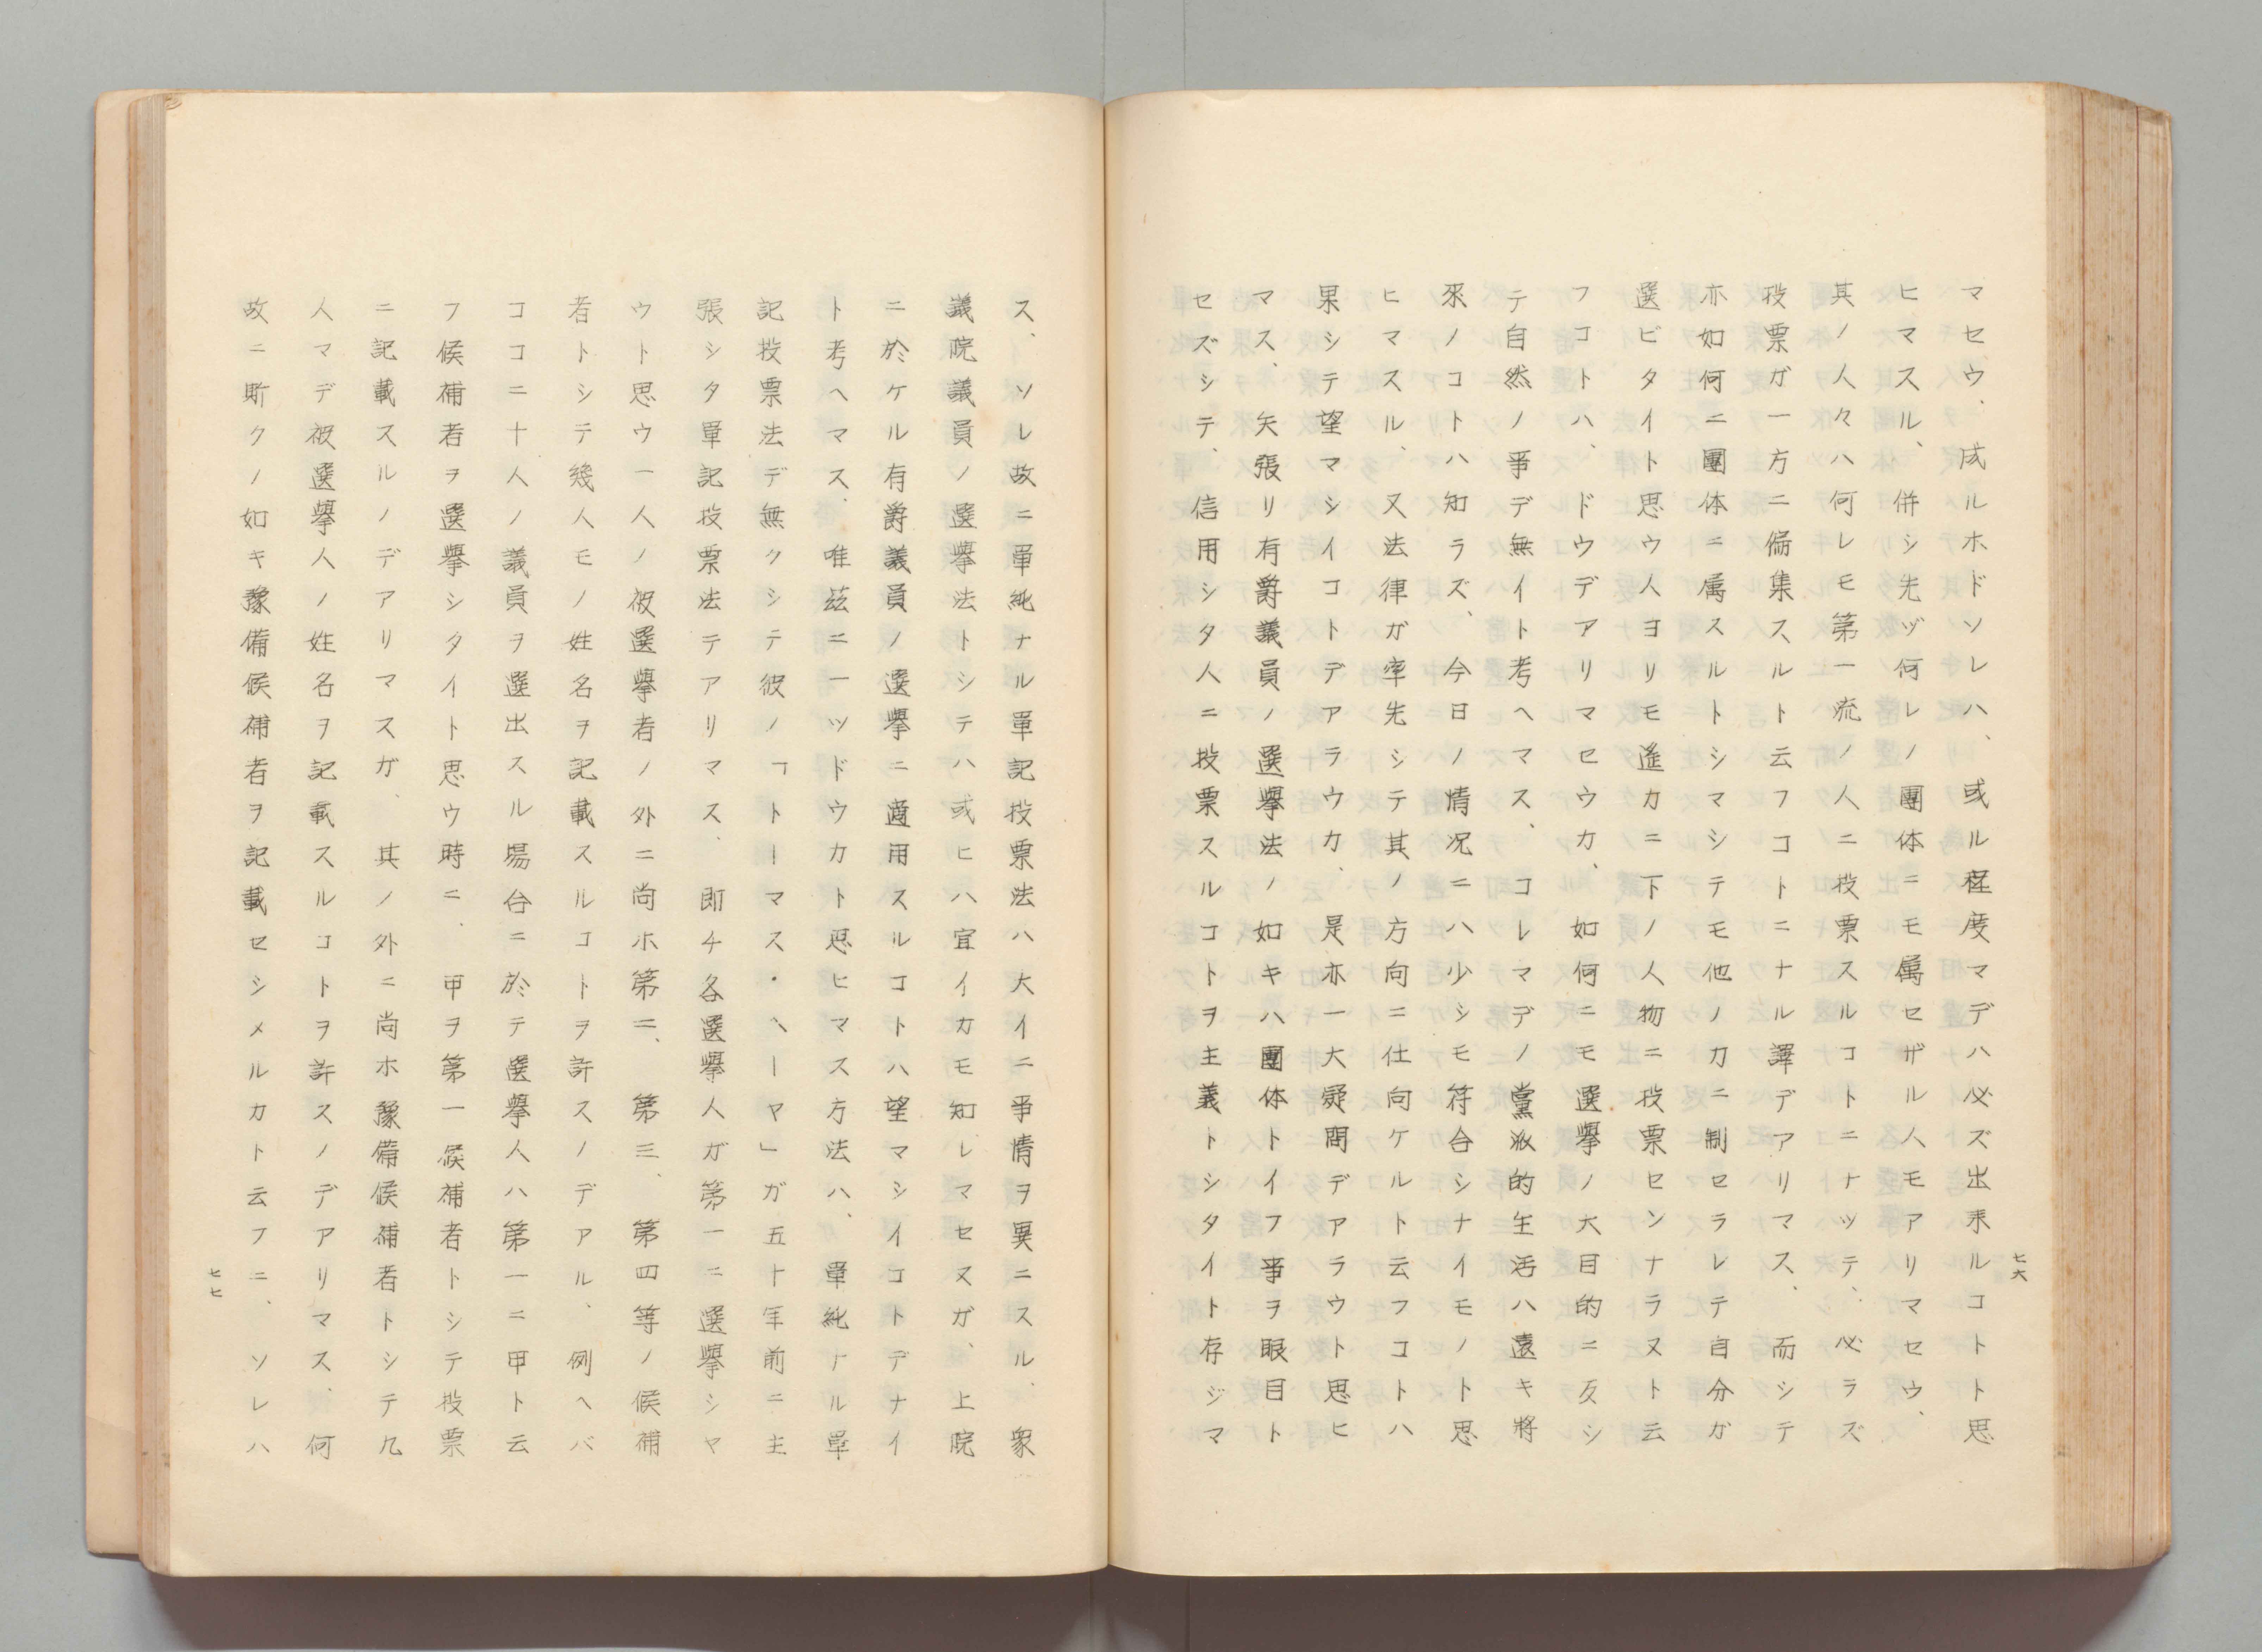 七六
マセウ、成ルホドソレハ、或ル程度マデハ必ズ出来ルコトト思
ヒマスル、併シ先ヅ何レノ團体ニモ属セザル人モアリマセウ、
其ノ人々ハ何レモ第一流ノ人ニ投票スルコトニナッテ、必ラズ
投票ガ一方ニ偏集スルト云フコトニナル譯デアリマス、而シテ
亦如何ニ團体ニ属スルトシマシテモ他ノ力ニ制セラレテ自分ガ
選ビタイト思ウ人ヨリモ遙カニ下ノ人物ニ投票センナラヌト云
フコトハ、ドウデアリマセウカ、如何ニモ選擧ノ大目的ニ反シ
テ自然ノ爭デ無イト考ヘマス、コレマデノ黨派的生活ハ遠キ將
來ノコトハ知ラズ、今日ノ情況ニハ少シモ符合シナイモノト思
ヒマスル、又法律ガ率先シテ其ノ方向ニ仕向ケルト云フコトハ
果シテ望マシイコトデアラウカ、是亦一大疑問デアラウト思ヒ
マス、矢張リ有爵議員ノ選擧法ノ如キハ團体トイフ事ヲ眼目ト
セズシテ、信用シタ人ニ投票スルコトヲ主義トシタイト存ジマ
ス、ソレ故ニ單純ナル單記投票法ハ大イニ事情ヲ異ニスル、衆
議院議員ノ選擧法トシテハ或ヒハ宜イカモ知レマセヌガ、上院
ニ於ケル有爵議員ノ選擧ニ適用スルコトハ望マシイコトデナイ
ト考ヘマス、唯茲ニ一ツドウカト思ヒマス方法ハ、單純ナル單
記投票法デ無クシテ彼ノ「トーマス・ヘーヤ」ガ五十年前ニ主
張シタ單記投票法テアリマス、即チ各選擧人ガ第一ニ選擧シヤ
ウト思ウ一人ノ被選擧者ノ外ニ尚ホ第二、第三、第四等ノ候補
者トシテ幾人モノ姓名ヲ記載スルコトヲ許スノデアル、例ヘバ
ココニ十人ノ議員ヲ選出スル場合ニ於テ選擧人ハ第一ニ甲ト云
フ候補者ヲ選擧シタイト思ウ時ニ、甲ヲ第一候補者トシテ投票
ニ記載スルノデアリマスガ、其ノ外ニ尚ホ豫備候補者トシテ九
人マデ被選擧人ノ姓名ヲ記載スルコトヲ許スノデアリマス、何
故ニ斯クノ如キ豫備候補者ヲ記載セシメルカト云フニ、ソレハ
七七